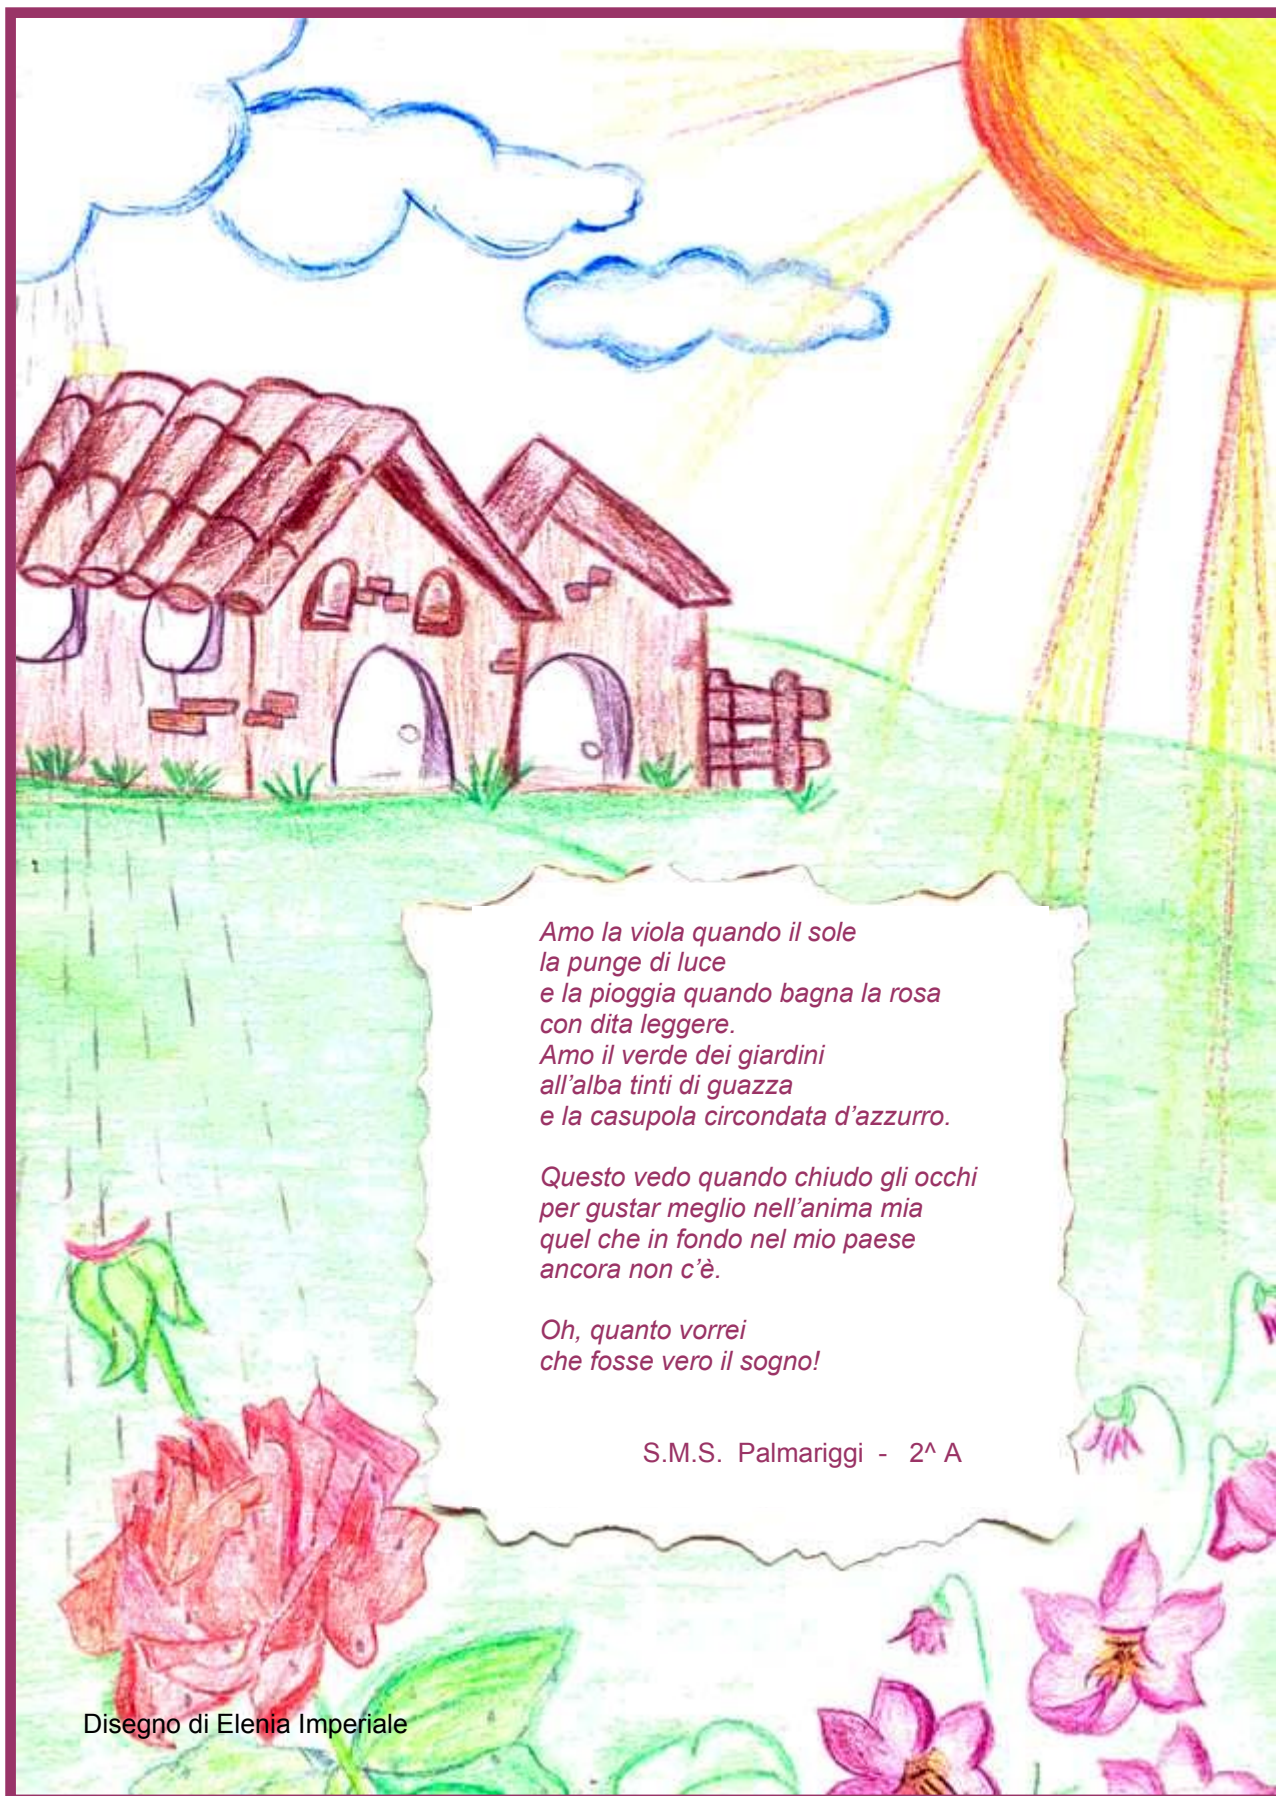 Amo la viola quando il sole
la punge di luce
e la pioggia quando bagna la rosa
con dita leggere.
Amo il verde dei giardini
all’alba tinti di guazza
e la casupola circondata d’azzurro.
Questo vedo quando chiudo gli occhi
per gustar meglio nell’anima mia
quel che in fondo nel mio paese
ancora non c’è.
Oh, quanto vorrei
che fosse vero il sogno!
S.M.S. Palmariggi - 2^ A
Disegno di Elenia Imperiale